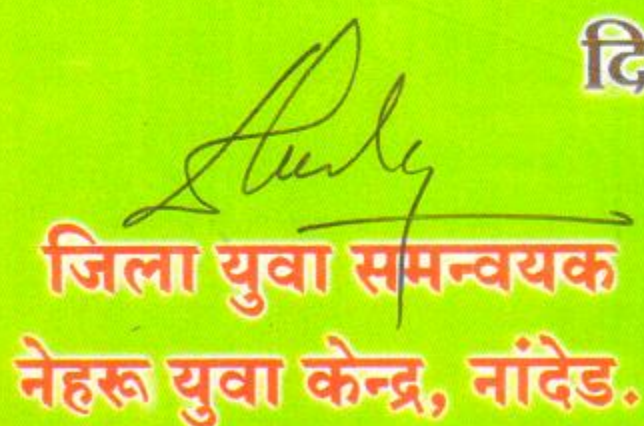 दि
जिला युवा समन्वयक
नेहरू युवा केन्द्र, नांदेड.